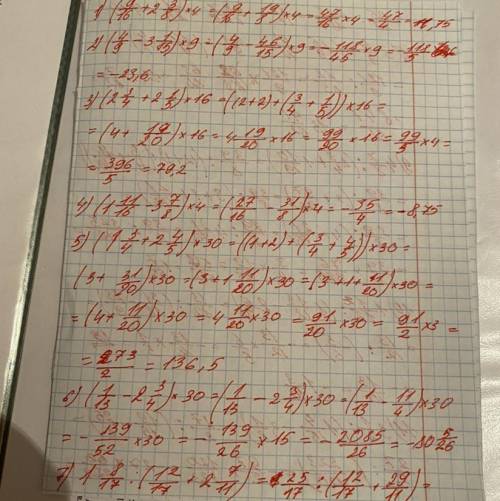 1) (9/16 + 2 3/8) × 4 = (9/16 + 19/8) × 4 = 47/16 × 4 = 47/4 = 11,75
2) (4/9 - 3 1/15) × 9 = (4/9 - 46/15) × 9 = - 118/45 × 9 = - 118/5
= -23,6
3) (2 3/4 + 2 1/5) × 16 = ((2+2) + (3/4 + 1/5)) × 16 =
= (4 + 19/20) × 16 = 4 19/20 × 16 = 99/20 × 16 = 99/5 × 4 =
= 396/5 = 79,2
4) (1 11/16 - 3 7/8) × 4 = (27/16 - 31/8) × 4 = - 35/4 = -8,75
5) (1 3/4 + 2 4/5) × 30 = ((1+2) + (3/4 + 4/5)) × 30 =
(3 + 31/20) × 30 = (3 + 1 11/20) × 30 = (3 + 1 + 11/20) × 30 =
= (4 + 11/20) × 30 = 4 11/20 × 30 = 91/20 × 30 = 91/2 × 3 =
= 273/2 = 136,5
6) (1/13 - 2 3/4) × 30 = (1/13 - 2 3/4) × 30 = (1/13 - 11/4) × 30
= - 139/52 × 30 = - 139/26 × 15 = - 2085/26 = -80 5/26
7) 1 8/17 : (12/17 + 2 7/11) = 25/17 : (12/17 + 29/11) =